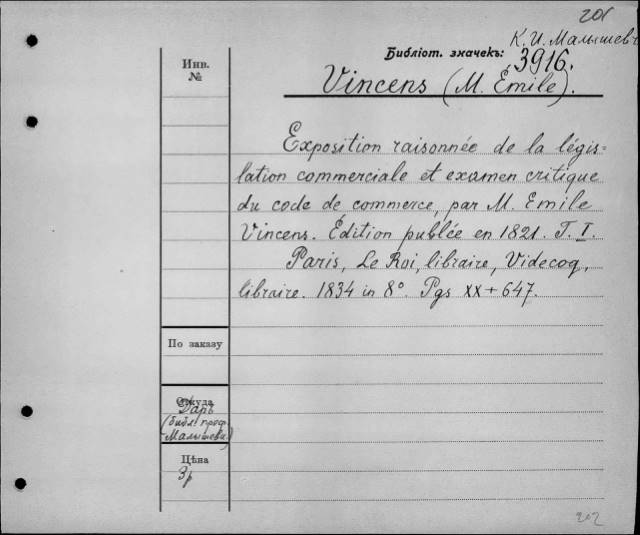 201
К. И. Малышевъ
Библіот. значекъ:
3916.
Инв.
№
Vincens (M. Émile).
Exposition raisonnée de la légis=
lation commerciale et examen critique
du code de commerce, par M. Emile
Vincens. Édition publée en 1821. T. I.
Paris, Le Roi, libraire, Videcoq,
libraire. 1834 in 8°. Pgs XX + 647.
По заказу
Откуда
Даръ
(библ. проф.
Малышева)
Цѣна
3р
202